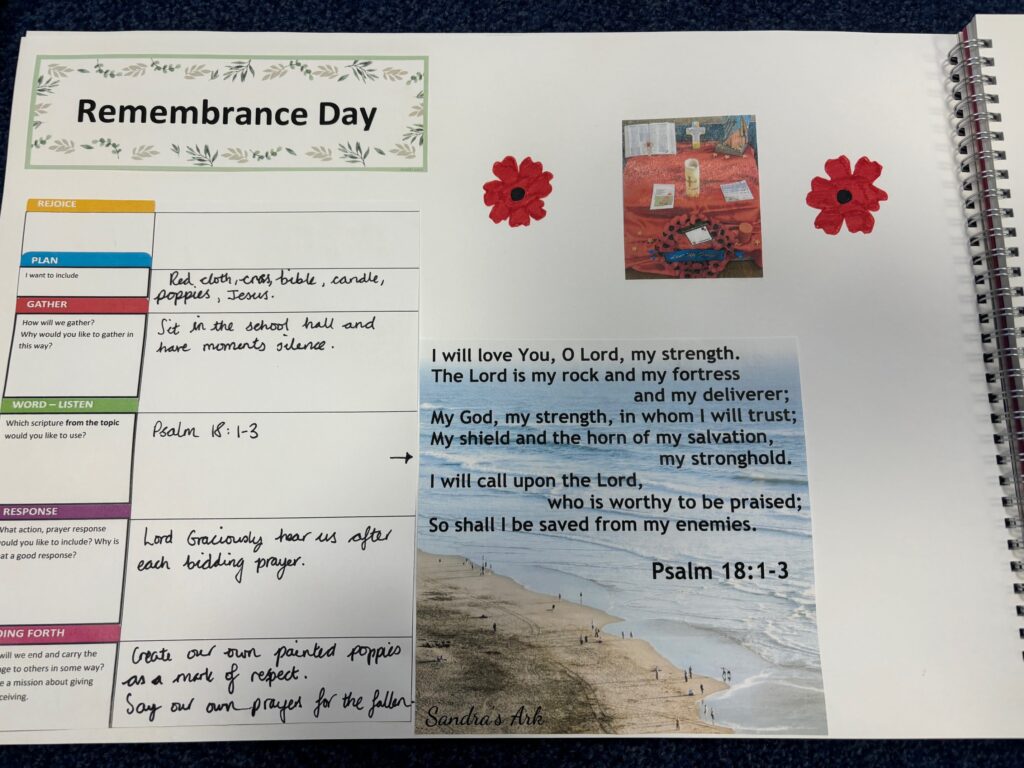 Remembrance Day
REJOICE
PLAN
I want to include
Red cloth, cross, bible, candle,
poppies, Jesus.
GATHER
How will we gather?
Why would you like to gather in
this way?
Sit in the school hall and
have moments silence.
WORD – LISTEN
Which scripture from the topic
would you like to use?
Psalm 18:1-3
RESPONSE
What action, prayer response
would you like to include? Why is
at a good response?
Lord Graciously hear us after
each bidding prayer.
DING FORTH
will we end and carry the
ge to others in some way?
e a mission about giving
ceiving.
Create our own painted poppies
as a mark of respect.
Say our own prayers for the fallen.
I will love You, O Lord, my strength.
The Lord is my rock and my fortress
and my deliverer;
My God, my strength, in whom I will trust;
My shield and the horn of my salvation,
my stronghold.
I will call upon the Lord,
who is worthy to be praised;
So shall I be saved from my enemies.
Psalm 18:1-3
Sandra's Ark